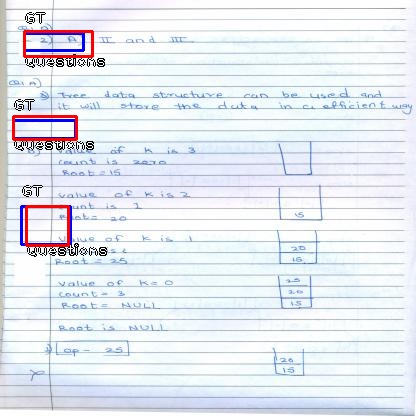 GT
Q1 A)
2) A) II and III
Questions
Q1 A)
3) Tree data structure can be used and
it will store the data in a efficient way
GT
Questions
value of K is 3
count is zero
Root = 15
value of K is 2
count is 1
Root = 20
15
GT
value of K is 1
Root = 25
20
15
Questions
value of K = 0
count = 3
Root = NULL
25
20
15
Root is NULL
op - 25
20
15